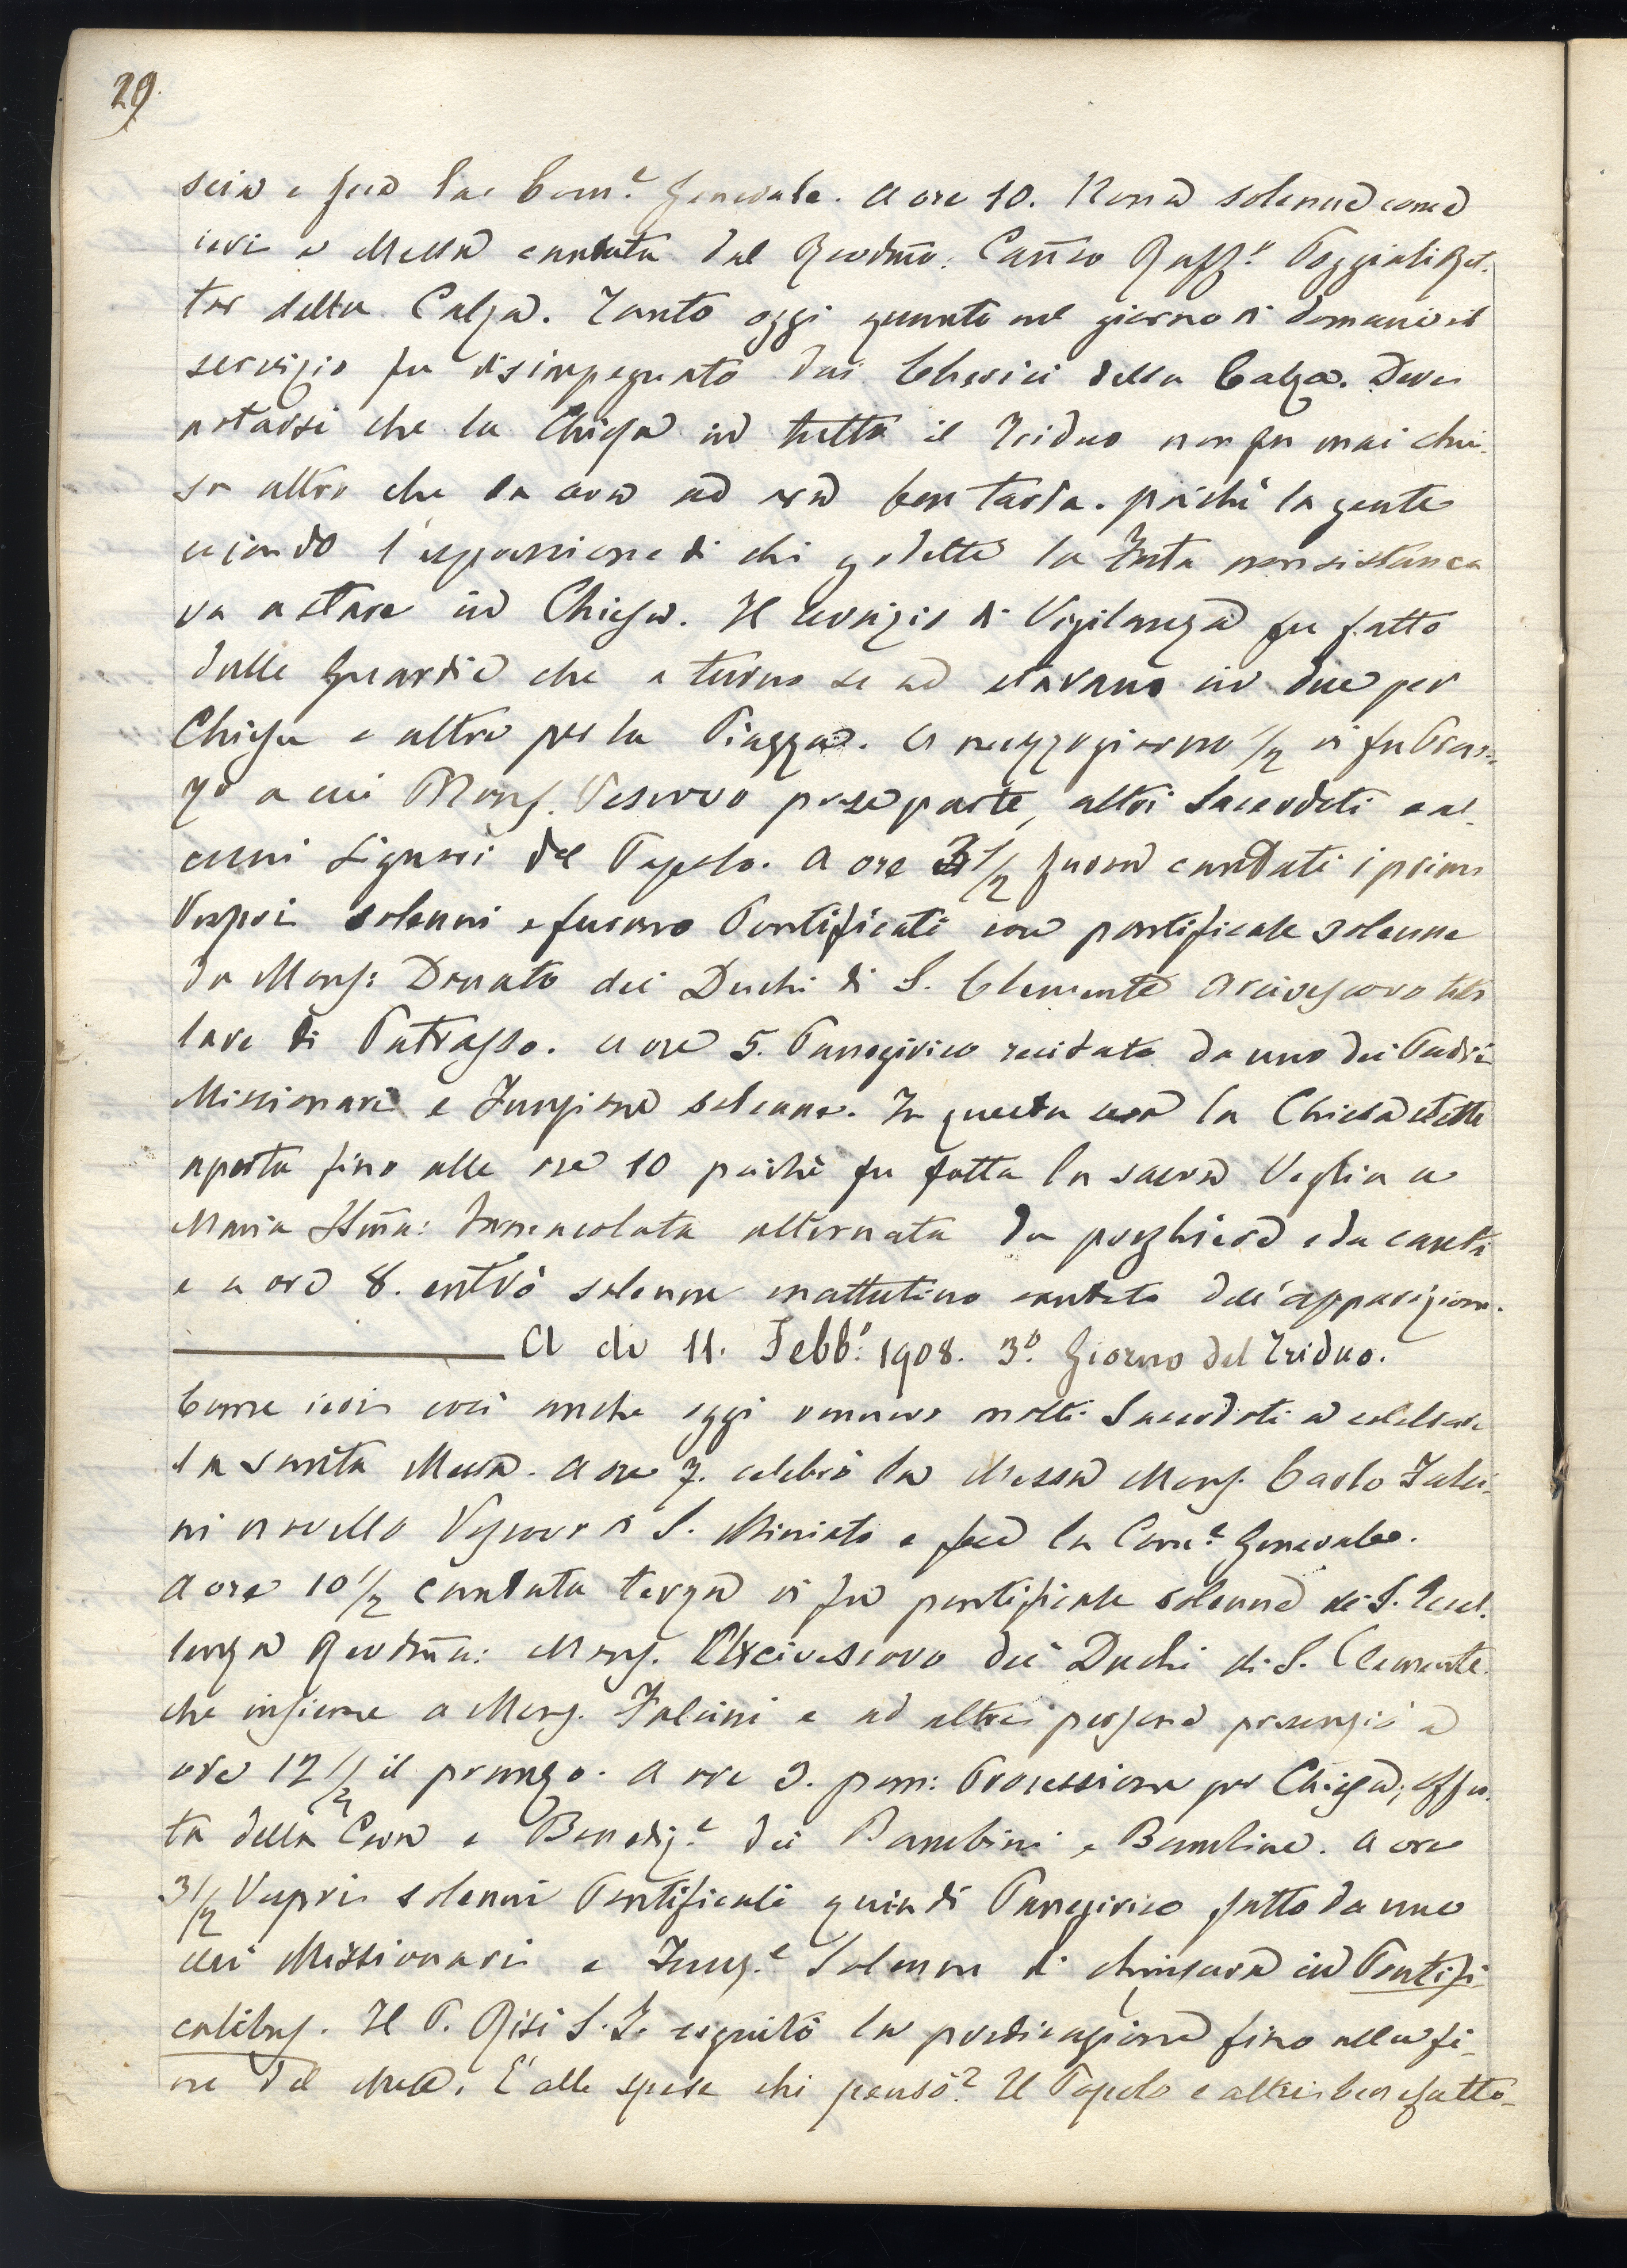 29.
scia e fece la Com.e Generale. A ore 10. Nona solenne come
ieri e Messa cantata dal Revdmo: Canco Raff.e Poggiali Ret-
tor della Calza. Tanto oggi quanto nel giorno di domani il
servizio fu disimpegnato dai Cherici della Calza. Deve
notarsi che la Chiesa in tutto il Triduo non fu mai chiu-
sa altro che la sera ad ora ben tarda. poiché la gente
secondo l'espressione di chi godette la festa non si stanca
va a stare in Chiesa. Il servizio di Vigilanza fu fatto
dalle Guardie che a turno se ne stavano in due per
Chiesa e altre per la Piazza. A mezzogiorno 1/2 vi fu Pran-
zo a cui Mons. Vescovo prese parte, altri Sacerdoti e al-
cuni Signori del Popolo. A ore 3 1/2 furon cantati i primi
Vespri solenni e furono Pontificati con pontificale solenne
da Mons: Donato dei Duchi di S. Clemente Arcivescovo tito
lare di Patrasso. A ore 5. Panegirico recitato da uno dei Padri
Missionari e Funzione solenne. In questa sera la Chiesa stette
aperta fino alle ore 10 poiché fu fatta la sacra Veglia a
Maria SSma: Immacolata alternata da preghiere e da canti
e a ore 8. entrò solenne mattutino cantato dell'apparizione.
A dì 11. Febb.o 1908. 3.o Giorno del Triduo.
Come ieri così anche oggi vennero molti Sacerdoti a celebrare
la santa Messa. A ore 7. celebrò la Messa Mons. Carlo Falci-
ni novello Vescovo di S. Miniato e fece la Com.e Generale.
A ore 10 1/2 cantata terza vi fu pontificale solenne di S. Eccel-
lenza Revdma: Mons. Arcivescovo dei Duchi di S. Clemente
che insieme a Mons. Falcini e ad altre persone presenziò a
ore 12 1/2 il pranzo. A ore 3. pom: Processione per Chiesa, offer-
ta della Cera e Benediz.e dei Bambini e Bambine. A ore
3 1/2 Vespri solenni Pontificali quindi Panegirico fatto da uno
dei Missionari e Funz.e Solenne di chiusura in Pontifi-
calibus. Il P. Risi S. J. seguitò la predicazione fino alla fi-
ne del Mese. E alle spese chi pensò? Il Popolo e altri benefatto-